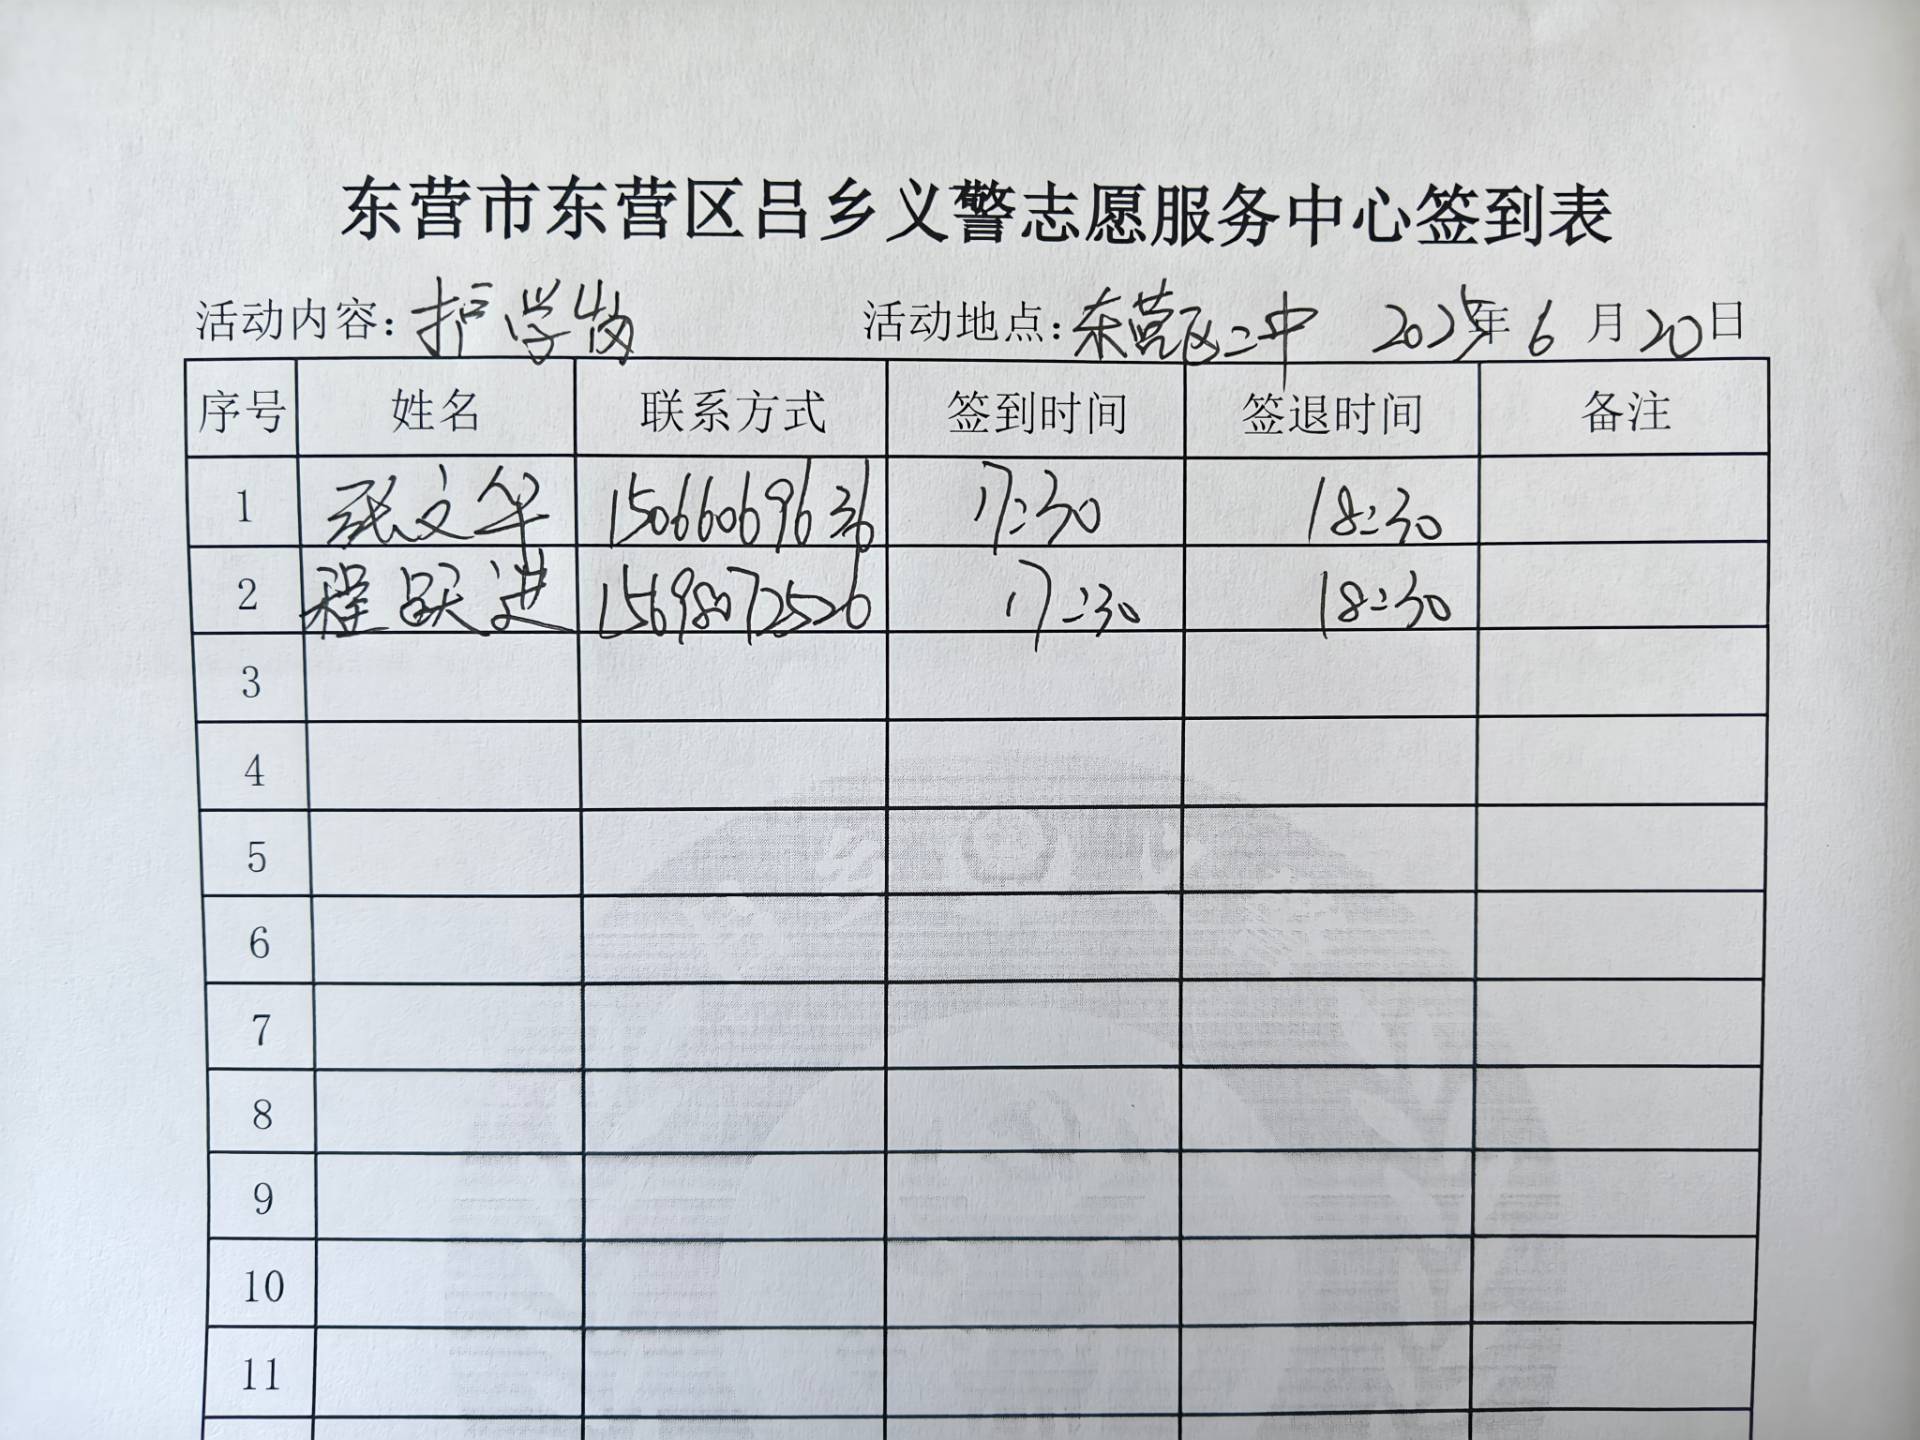 东营市东营区吕乡义警志愿服务中心签到表
活动内容：护学岗 活动地点：东营区二中 2025年 6 月 20 日
序号 姓名 联系方式 签到时间 签退时间 备注
1 张文华 15066069636 17:30 18:30
2 程跃进 15698072526 17:30 18:30
3
4
5
6
7
8
9
10
11